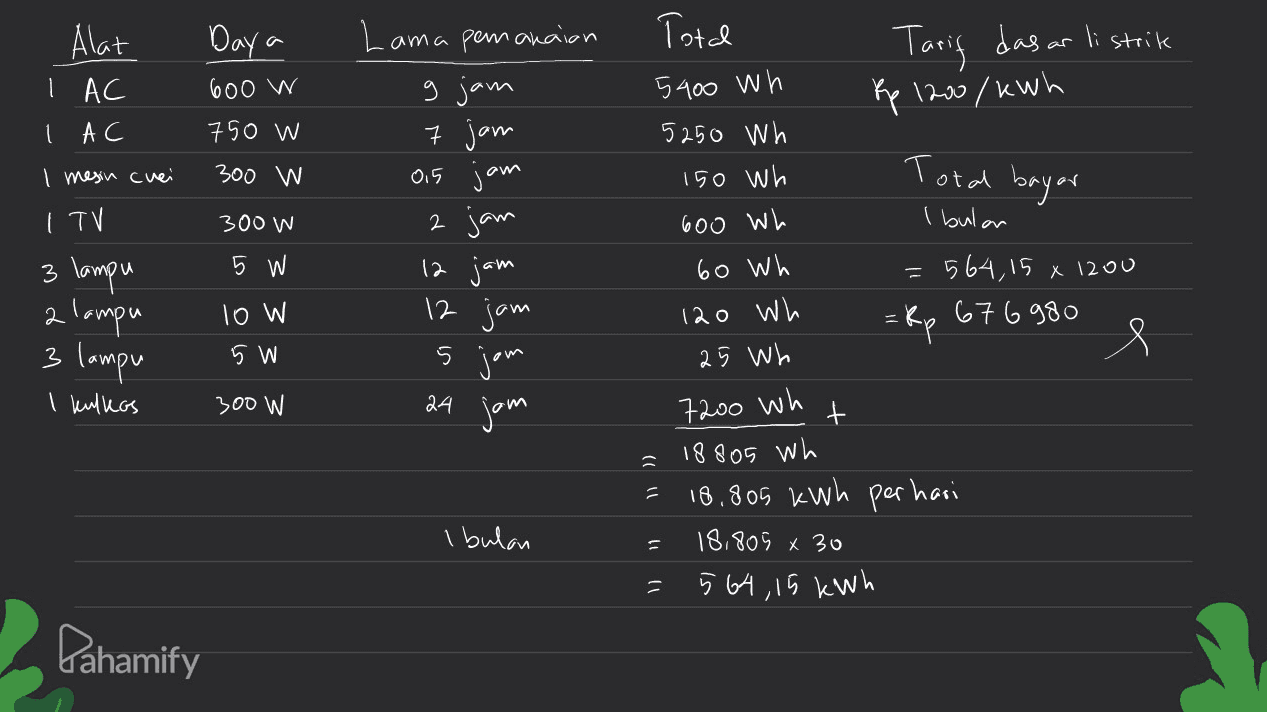 Alat Daya Lama pemakaian Total Tarif dasar listrik
1 AC 600 W 9 jam 5400 Wh Rp 1200/kWh
1 AC 750 W 7 jam 5250 Wh
1 mesin cuci 300 W 0,5 jam 150 Wh Total bayar
1 TV 300 W 2 jam 600 Wh 1 bulan
3 lampu 5 W 12 jam 60 Wh = 564,15 x 1200
2 lampu 10 W 12 jam 120 Wh = Rp 676980
3 lampu 5 W 5 jam 25 Wh
1 kulkas 300 W 24 jam 7200 Wh +
= 18805 Wh
= 18,805 kWh per hari
1 bulan = 18,805 x 30
= 564,15 kWh
Pahamify